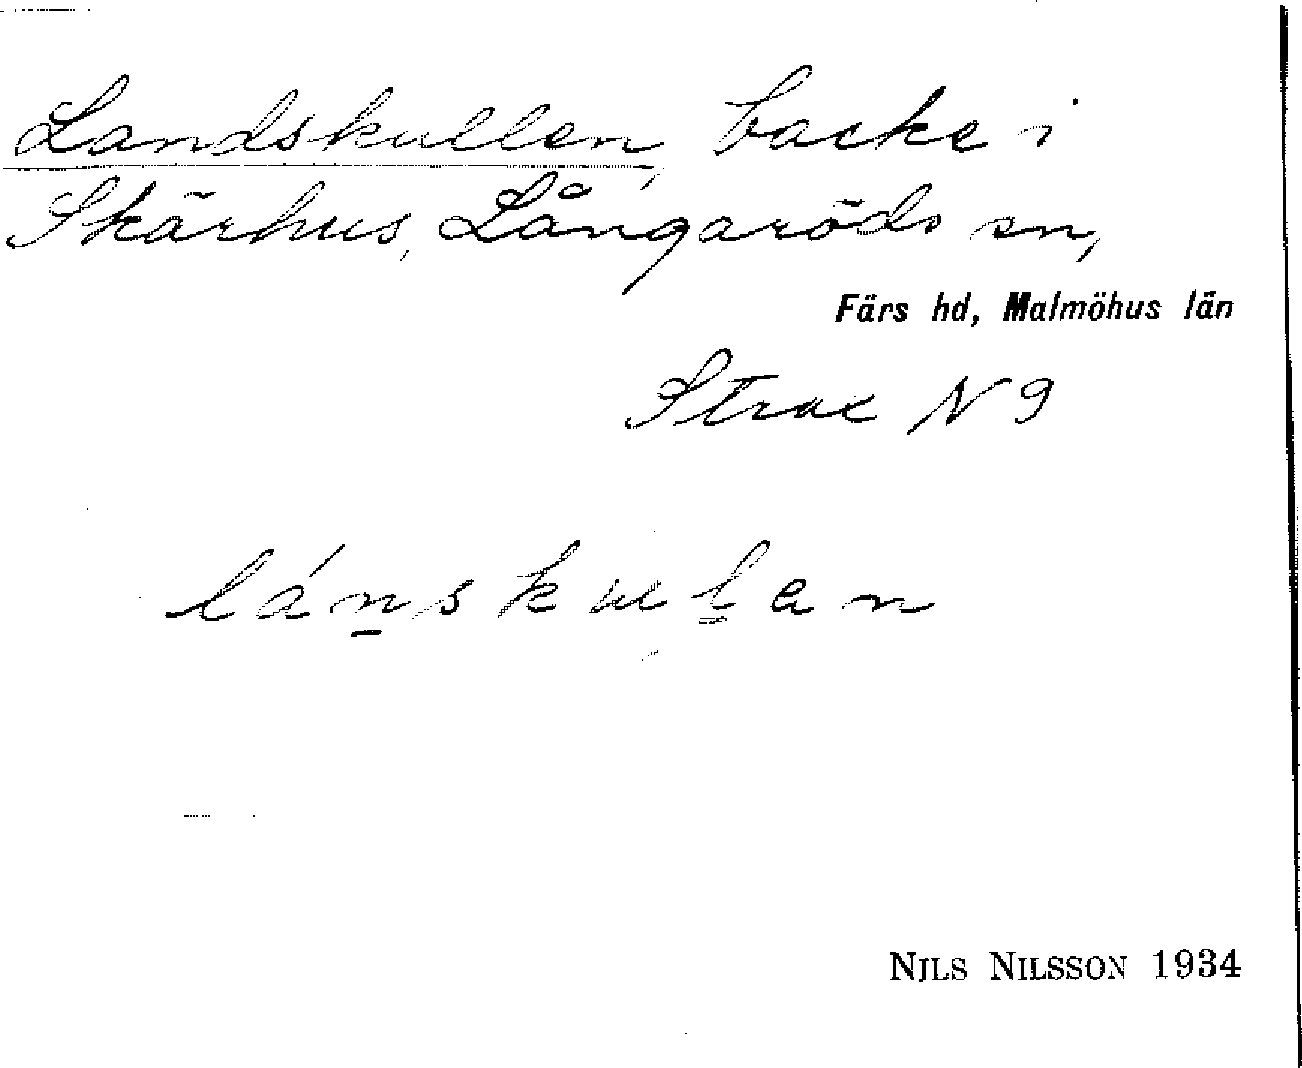 Landskullen, backe i
Skärhus, Långaröds sn,
Färs hd, Malmöhus län
Strax N 9
lánskulen
NILS NILSSON 1934